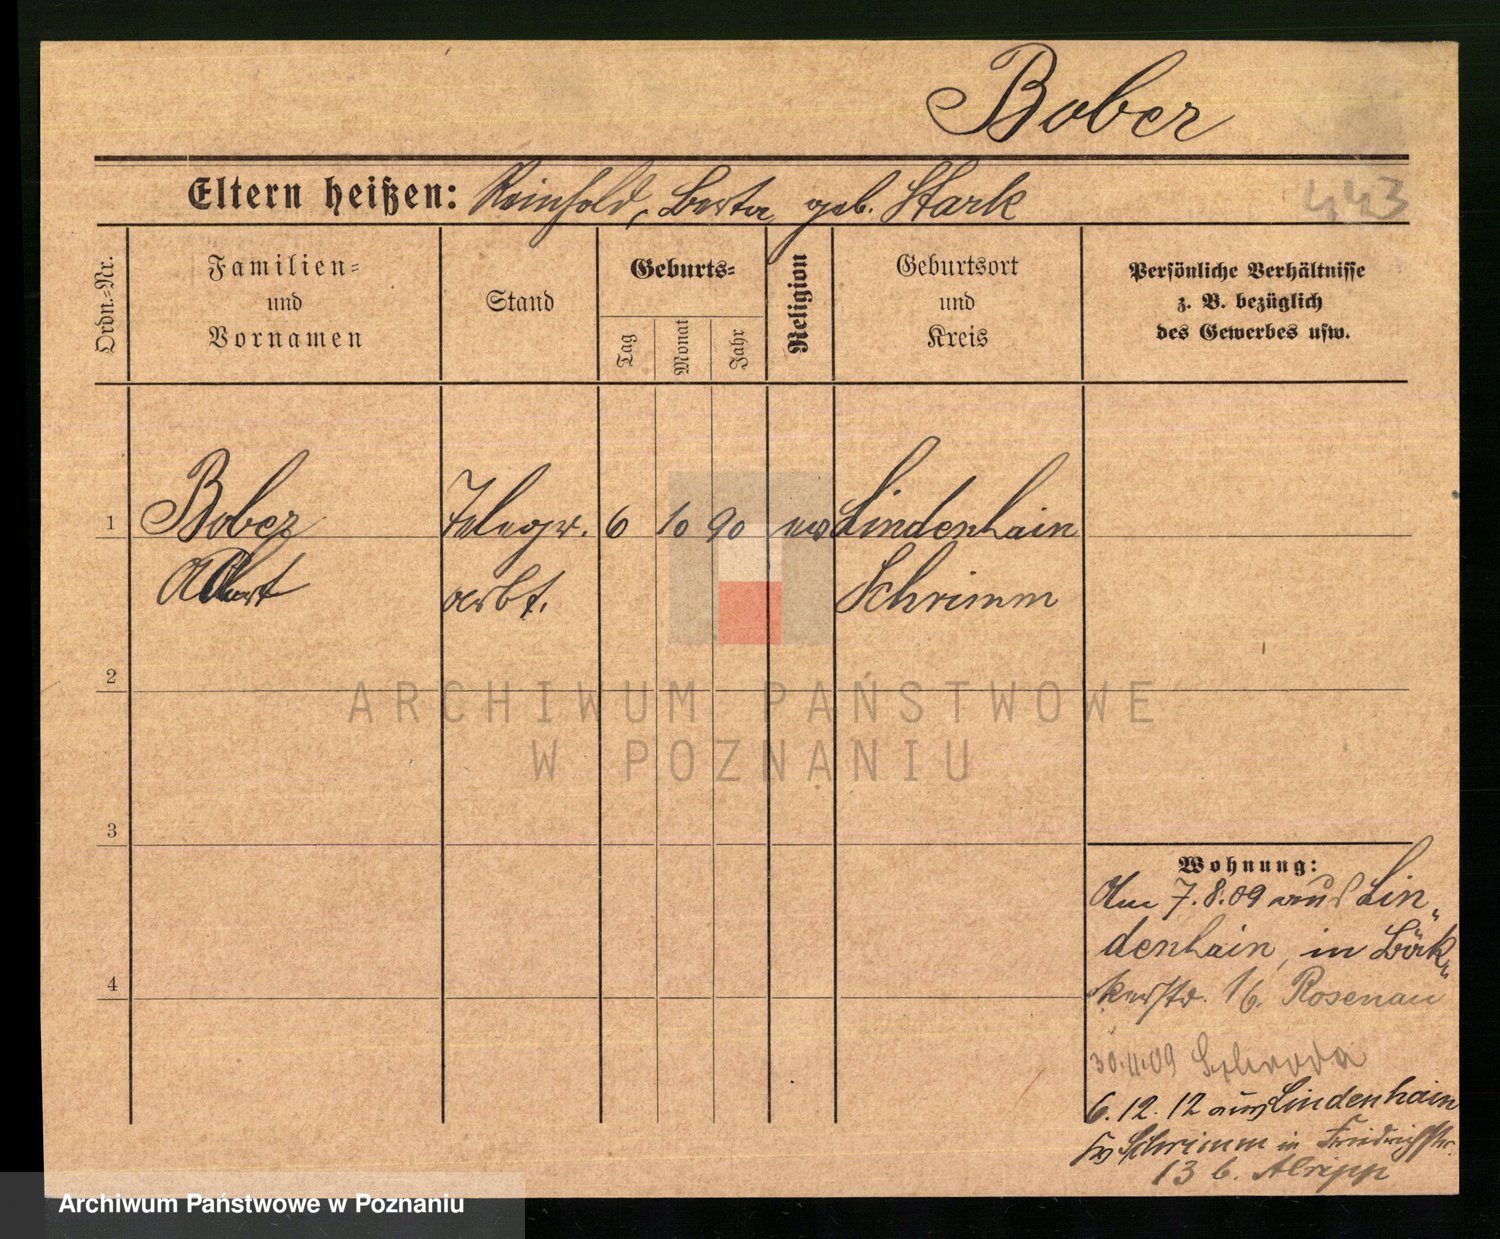 Bober
Eltern heißen: Reinhold, Berta geb. Stark
443
Ordn.-Nr.
Familien-
und
Vornamen
Stand
Geburts-
Tag
Monat
Jahr
Religion
Geburtsort
und
Kreis
Persönliche Verhältnisse
z. B. bezüglich
des Gewerbes usw.
1 Bober Telegr. 6 10 90 ev Lindenhain
arbt. Schrimm
2
ARCHIWUM PAŃSTWOWE
W POZNANIU
3
Wohnung:
Am 7.8.09 aus Lin„
denhain, in Bäk„
4
kerstr. 16. Rosenau
30.11.09 Schroda
6.12.12 aus Lindenhain
Schrimm in Friedrichstr.
13 b.
Archiwum Państwowe w Poznaniu